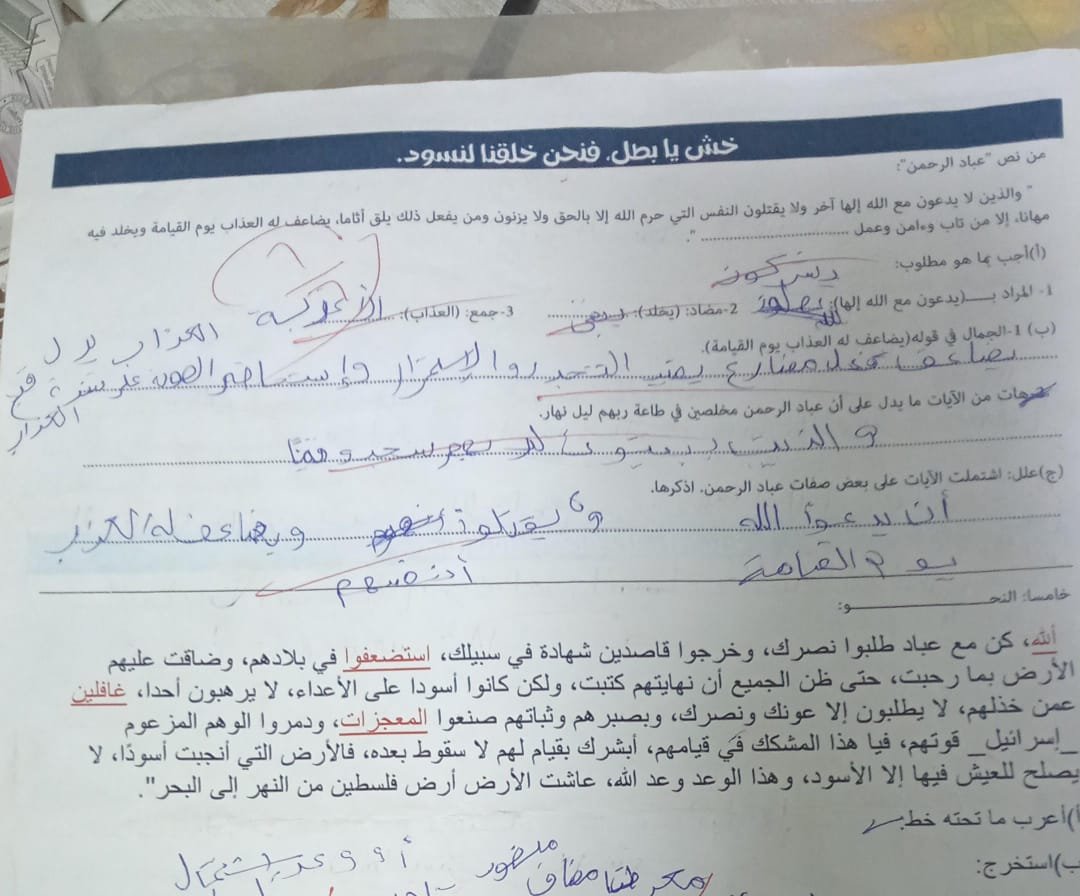 خش يا بطل، فنحن خلقنا لنسود.
من نص "عباد الرحمن":
" والذين لا يدعون مع الله إلها آخر ولا يقتلون النفس التي حرم الله إلا بالحق ولا يزنون ومن يفعل ذلك يلق أثاما، يضاعف له العذاب يوم القيامة ويخلد فيه
مهانا، إلا من تاب وءامن وعمل ................................ ".
(أ)أجب بما هو مطلوب:
يشركون
1- المراد بــــ(يدعون مع الله إلها): 2-مضاد: (يخلد): 3-جمع: (العذاب): الأعذبة
(ب) 1-الجمال في قوله(يضاعف له العذاب يوم القيامة).
العذاب يدل
يضاعف فعل مضارع يفيد التجدد والاستمرار وإستحضار الصورة على
2-هات من الآيات ما يدل على أن عباد الرحمن مخلصين في طاعة ربهم ليل نهار.
(ج)علل: اشتملت الآيات على بعض صفات عباد الرحمن. اذكرها.
أن يدعوا الله ويضاعف له العذاب
يوم القيامة أنفسهم
خامسا: النحـــــــــــو:
الله، كن مع عباد طلبوا نصرك، وخرجوا قاصدين شهادة في سبيلك، استضعفوا في بلادهم، وضاقت عليهم
الأرض بما رحبت، حتى ظن الجميع أن نهايتهم كتبت، ولكن كانوا أسودا على الأعداء، لا يرهبون أحدا، غافلين
عمن خذلهم، لا يطلبون إلا عونك ونصرك، وبصبرهم وثباتهم صنعوا المعجزات، ودمروا الوهم المزعوم
_إسرائيل_ قوتهم، فيا هذا المشكك في قيامهم، أبشرك بقيام لهم لا سقوط بعده، فالأرض التي أنجبت أسودًا، لا
يصلح للعيش فيها إلا الأسود، وهذا الوعد وعد الله، عاشت الأرض أرض فلسطين من النهر إلى البحر".
أ)أعرب ما تحته خط:
ب)استخرج: